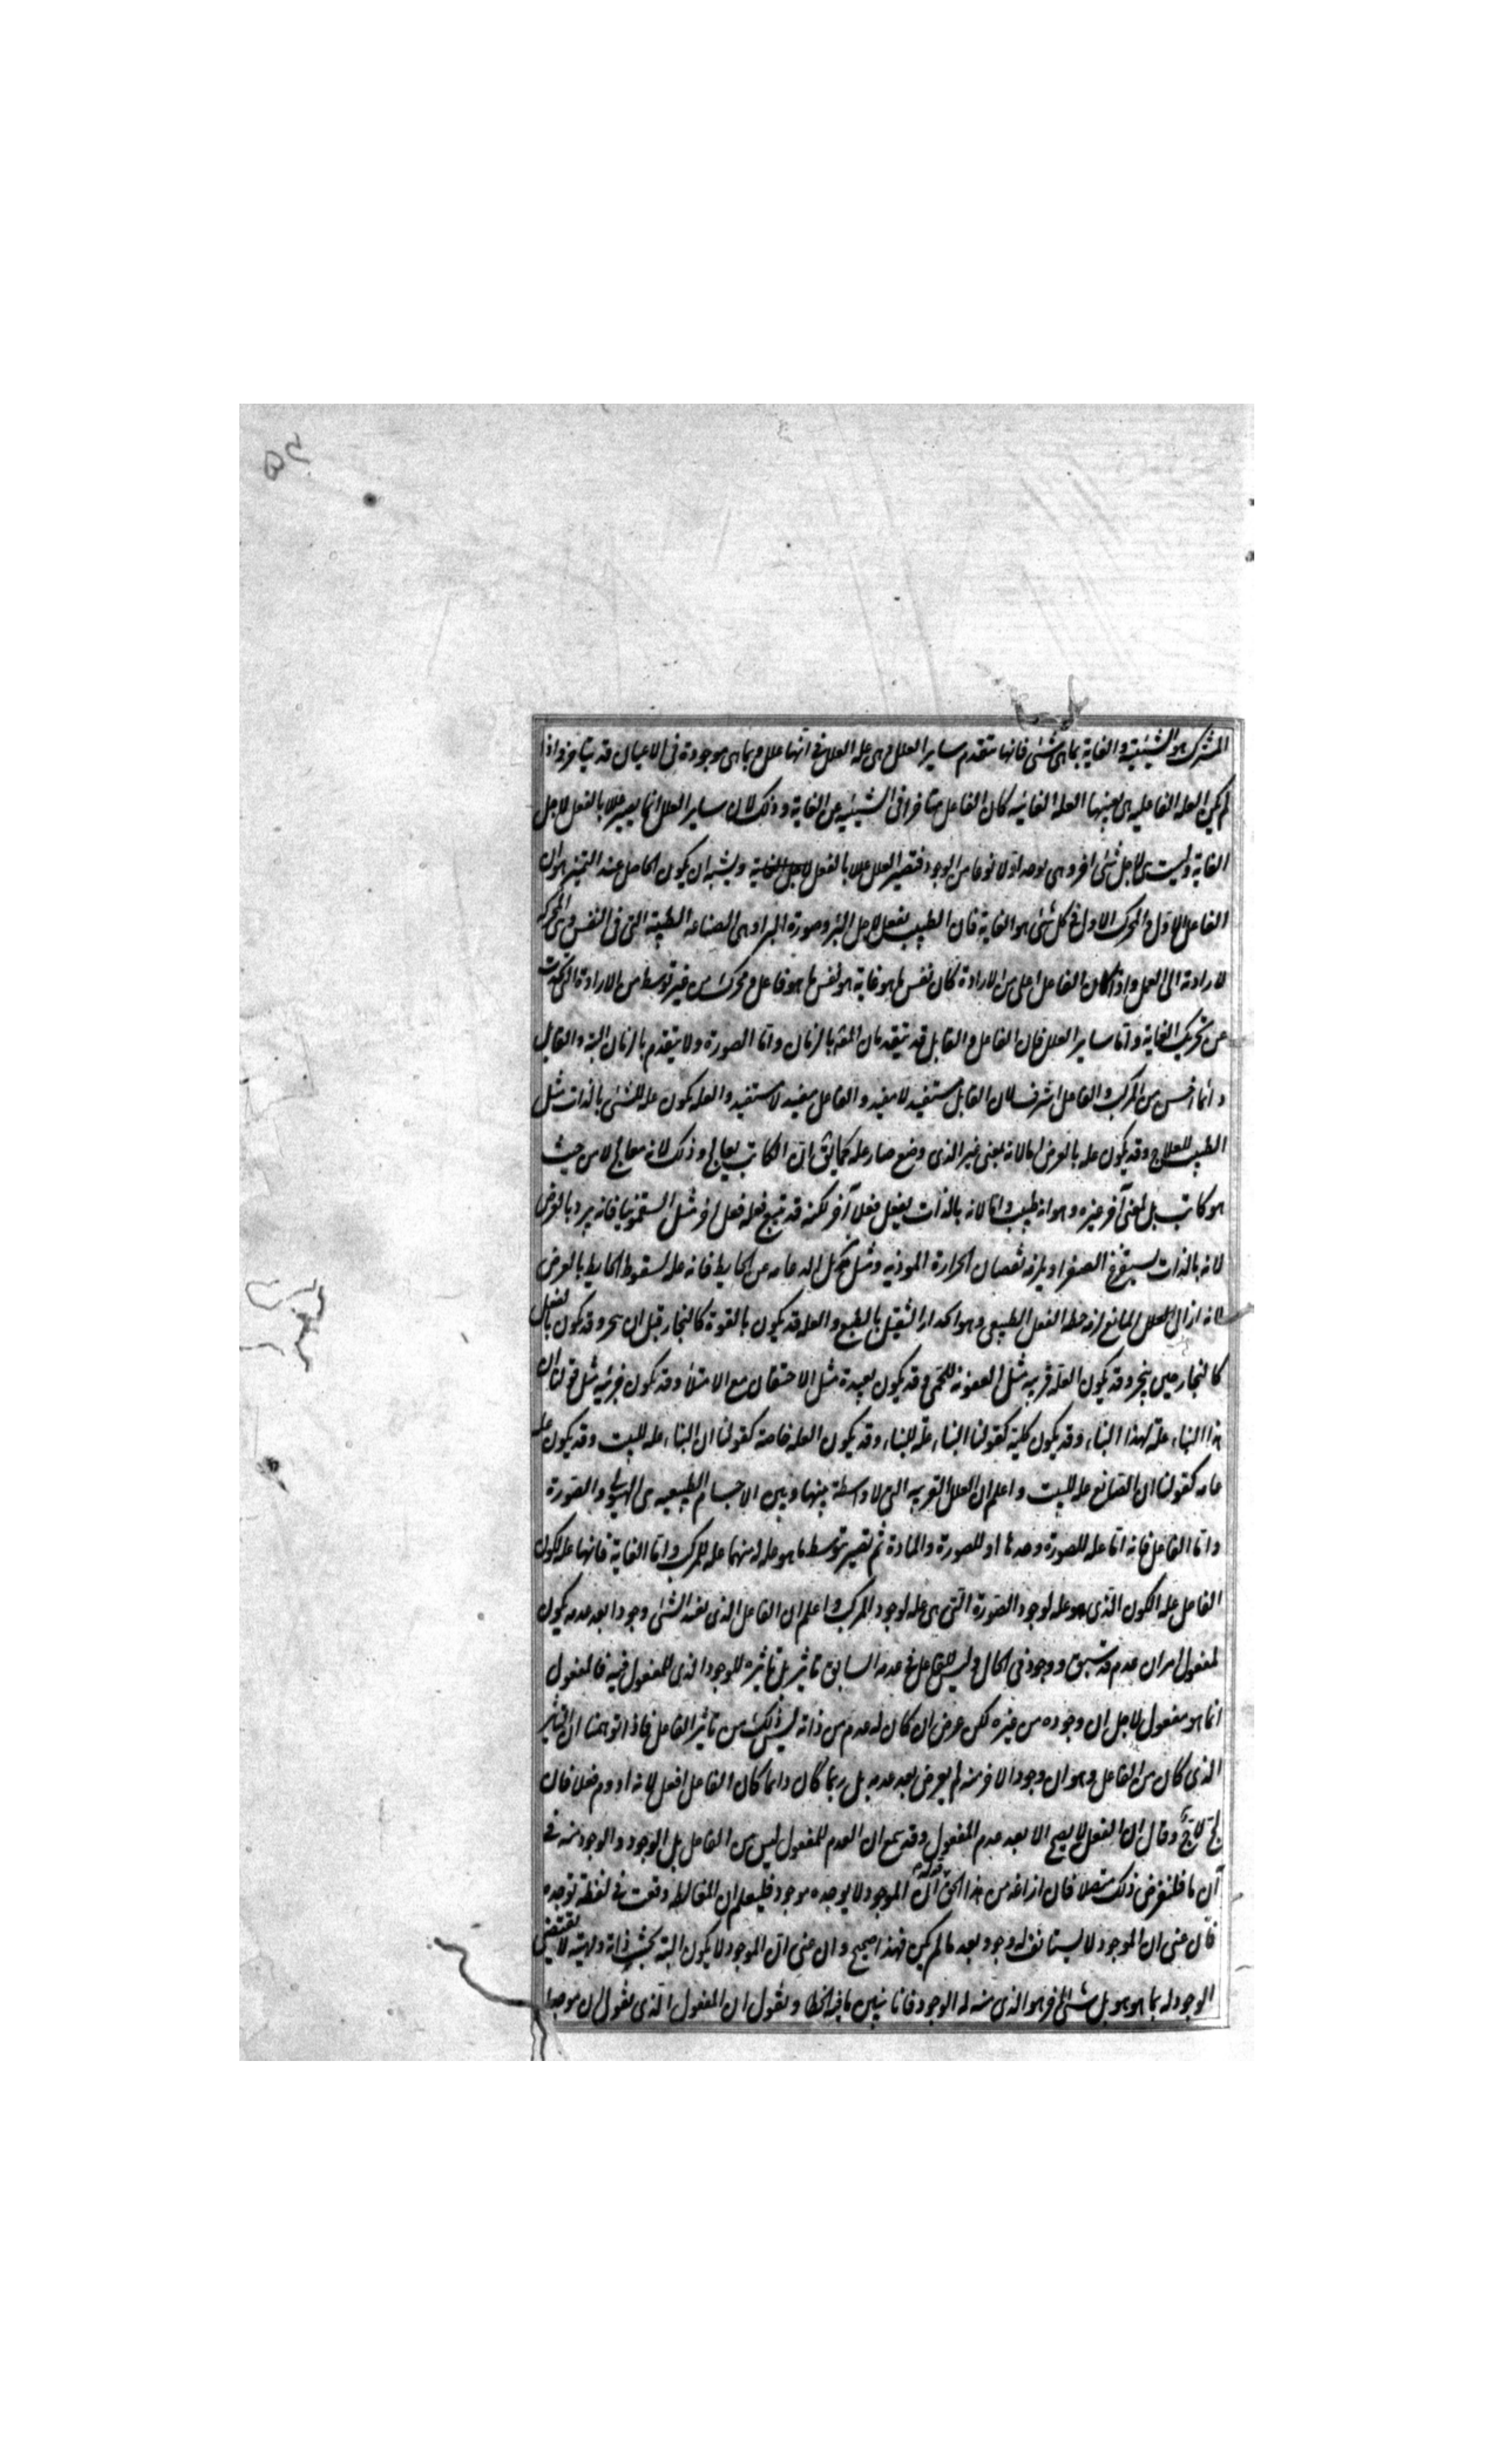 المشترك هو الشيئية والغاية بما هى شئ فانها تتقدم ساير العلل وهى علة العلل فى انها علل وبما هى موجودة فى الاعيان قد يتاخر واذا
لم يكن العلة الفاعلية هى بعينها العلة الغائية كان الفاعل متاخرا فى الشيئية عن الغاية وذلك لان ساير العلل انما يصير عللا بالفعل لاجل
الغاية وليست هى لاجل شئ اخر وهى توجد اولا نوعا من الوجود فتصير العلل عللا بالفعل لاجل الغاية ويشبه ان يكون الحاصل عند التميز هو ان
الفاعل الاول والمحرك الاول فى كل شئ هو الغاية فان الطبيب يفعل لاجل البرؤ وصورة البرأ وهى الصناعة الطبية التى فى النفس وهى المحركة
لارادته الى العمل واذا كان الفاعل اعلى من الارادة كان نفس ما هو غاية هو نفس ما هو فاعل ومحرك من غير توسط من الارادة التى تحدث
عن تحريك الغاية واما ساير العلل فان الفاعل والقابل قد يتقدمان المعلول بالزمان واما الصورة ولا يتقدم بالزمان البتة والقابل
دائما اخس من المركب والفاعل اشرف لان القابل مستفيد لا مفيد والفاعل مفيد لا مستفيد والعلة تكون علة للشئ بالذات مثل
الطبيب للعلاج وقد يكون علة بالعرض اما لانه بمعنى غير الذى وضع صار علة كما يق ان الكاتب يعالج وذلك لانه معالج لا من حيث
هو كاتب بل لمعنى آخر غيره وهو انه طبيب واما لانه بالذات يفعل فعلا آخر لكنه قد تتبع فعله فعل آخر مثل السقمونيا فانه يبرد بالعرض
لانه بالذات يستفرغ الصفرا ويلزمه نقصان الحرارة الموذية ومثل مزيل الدعامة عن الحايط فانه علة لسقوط الحايط بالعرض
لانه ازال المانع لزم فعله الفعل الطبيعى وهو انحدار الثقيل بالطبع والعلة قد يكون بالقوة كالنجار قبل ان ينجر وقد يكون بالفعل
كالنجار حين ينجر وقد يكون العلة قريبة مثل العفونة للحمى وقد يكون بعيدة مثل الاحتقان مع الامتلأ وقد يكون جزئية مثل قولنا ان
هذا البناء علة لهذا البناء وقد يكون كلية كقولنا البناء علة للبناء وقد يكون العلة خاصة كقولنا ان البناء علة للبيت وقد يكون علة
عامة كقولنا ان الصانع علة للبيت واعلم ان العلل القريبة التى لا واسطة بينها وبين الاجسام الطبيعية هى الهيولى والصورة
واما الفاعل فانه اما علة للصورة وحدها او للصورة والمادة ثم تصير بتوسط ما هو علة له منهما علة للمركب واما الغاية فانها علة لكون
الفاعل علة الكون الذى هو علة لوجود الصورة التى هى علة لوجود المركب واعلم ان الفاعل الذى يفيد الشئ وجودا بعد عدمه يكون
لمفعوله امران عدم قد سبق ووجود فى الحال وليس للفاعل فى عدمه السابق تاثير بل تاثيره للوجود الذى للمفعول فيه فالمفعول
انما هو مفعول لاجل ان وجوده من غيره لكن عرض ان كان له عدم من ذاته ليس ذلك من تاثير الفاعل فاذا توهمنا ان التاثير
الذى كان من الفاعل وهو ان وجود الاخر منه لم يعرض بعد عدم بل ربما كان دائما كان الفاعل افعل لانه ادوم فعلا فان
لج لاج وقال ان الفعل لا يصح الا بعد عدم المفعول وقد سمع ان العدم للمفعول ليس من الفاعل بل الوجود والوجود منه فى
آن ما فلنفرض ذلك متصلا فان ازاغه من هذا الحق قوله ان الموجود لا يوجده موجد فليعلم ان المغالطة وقعت فى لفظة توجده
فان عنى ان الموجود لا يستانف له وجود بعد ما لم يكن فهذا صحيح وان عنى ان الموجود لا يكون البتة بحيث ذاته وماهيته لا يقتضى
الوجود له بما هو هو بل شئ اخر هو الذى منه له الوجود فانا نبين ما فيه الخطا ونقول ان المفعول الذى نقول ان موجدا